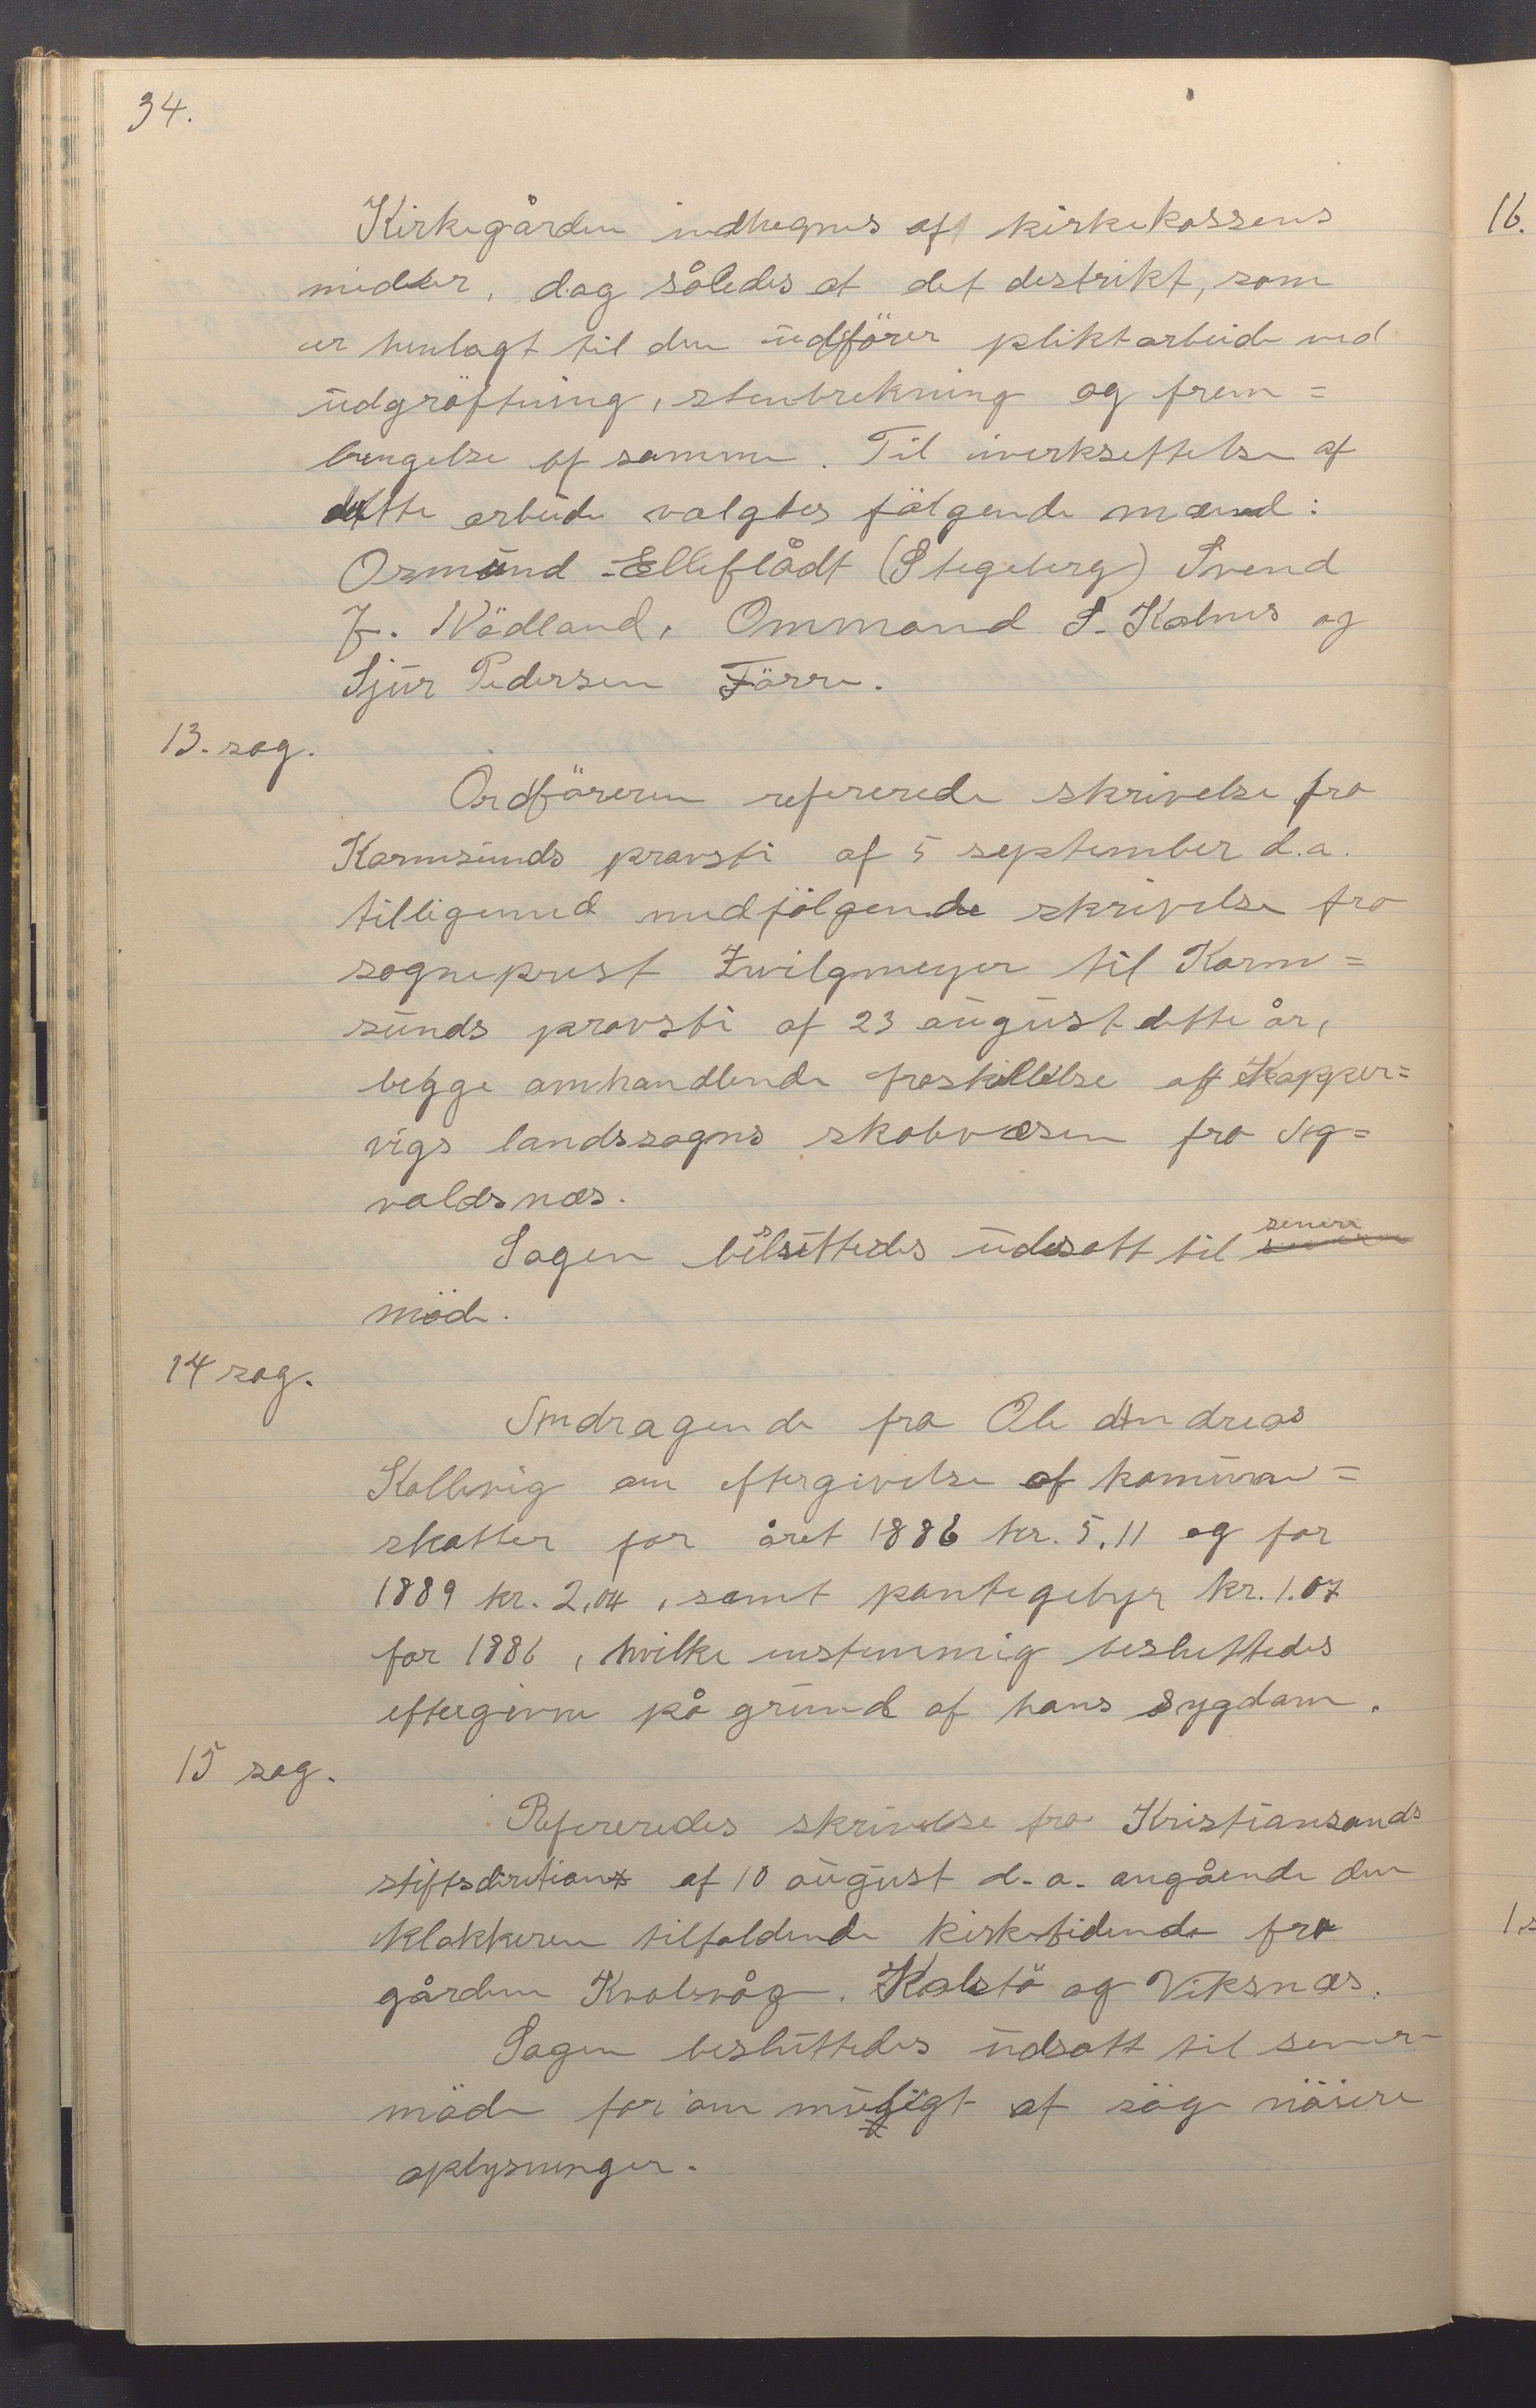 34.
Kirkegården indhegnes af kirkekassens
midler, dog således at det destrikt, som
er henlagt til den udfører pliktarbeide ved
udgrøftning, stenbrekning og frem=
bringelse af samme. Til iverksettelse af
dette arbeide valgtes følgende mænd:
Osmund Elleflådt (Stegeberg) Svend
J. Nødland, Ommund S. Kalnes og
Sjur Pedersen Førre.
13. sag.
Ordføreren refererede skrivelse fra
Karmsunds provsti af 5 september d.a.
tilligemed medfølgende skrivelse fra
sogneprest Zwilgmeyer til Karm=
sunds provsti af 23 august dette år,
begge omhandlende fraskillelse af Kopper=
vigs landssogns skolevæsen fra Aug=
valdsnæs.
Sagen besluttedes udsatt til senere
møde.
14 sag.
Andragende fra Ole Andreas
Kollevig om eftergivelse af kommune=
skatter for året 1886 kr. 5,11 og for
1889 kr. 2,04, samt pantegebyr kr. 1.07
for 1886, hvilke enstemmig besluttedes
eftergivne på grund af hans sygdom.
15 sag.
Refereredes skrivelse fra Kristiansands
stiftsdiretion af 10 august d.a. angående den
klokkeren tilfaldende kirketidende fra
gårdene Kvalevåg, Kalstø og Viksnæs.
Sagen besluttedes udsatt til senere
møde for om muligt at søge nøiere
oplysninger.
16.